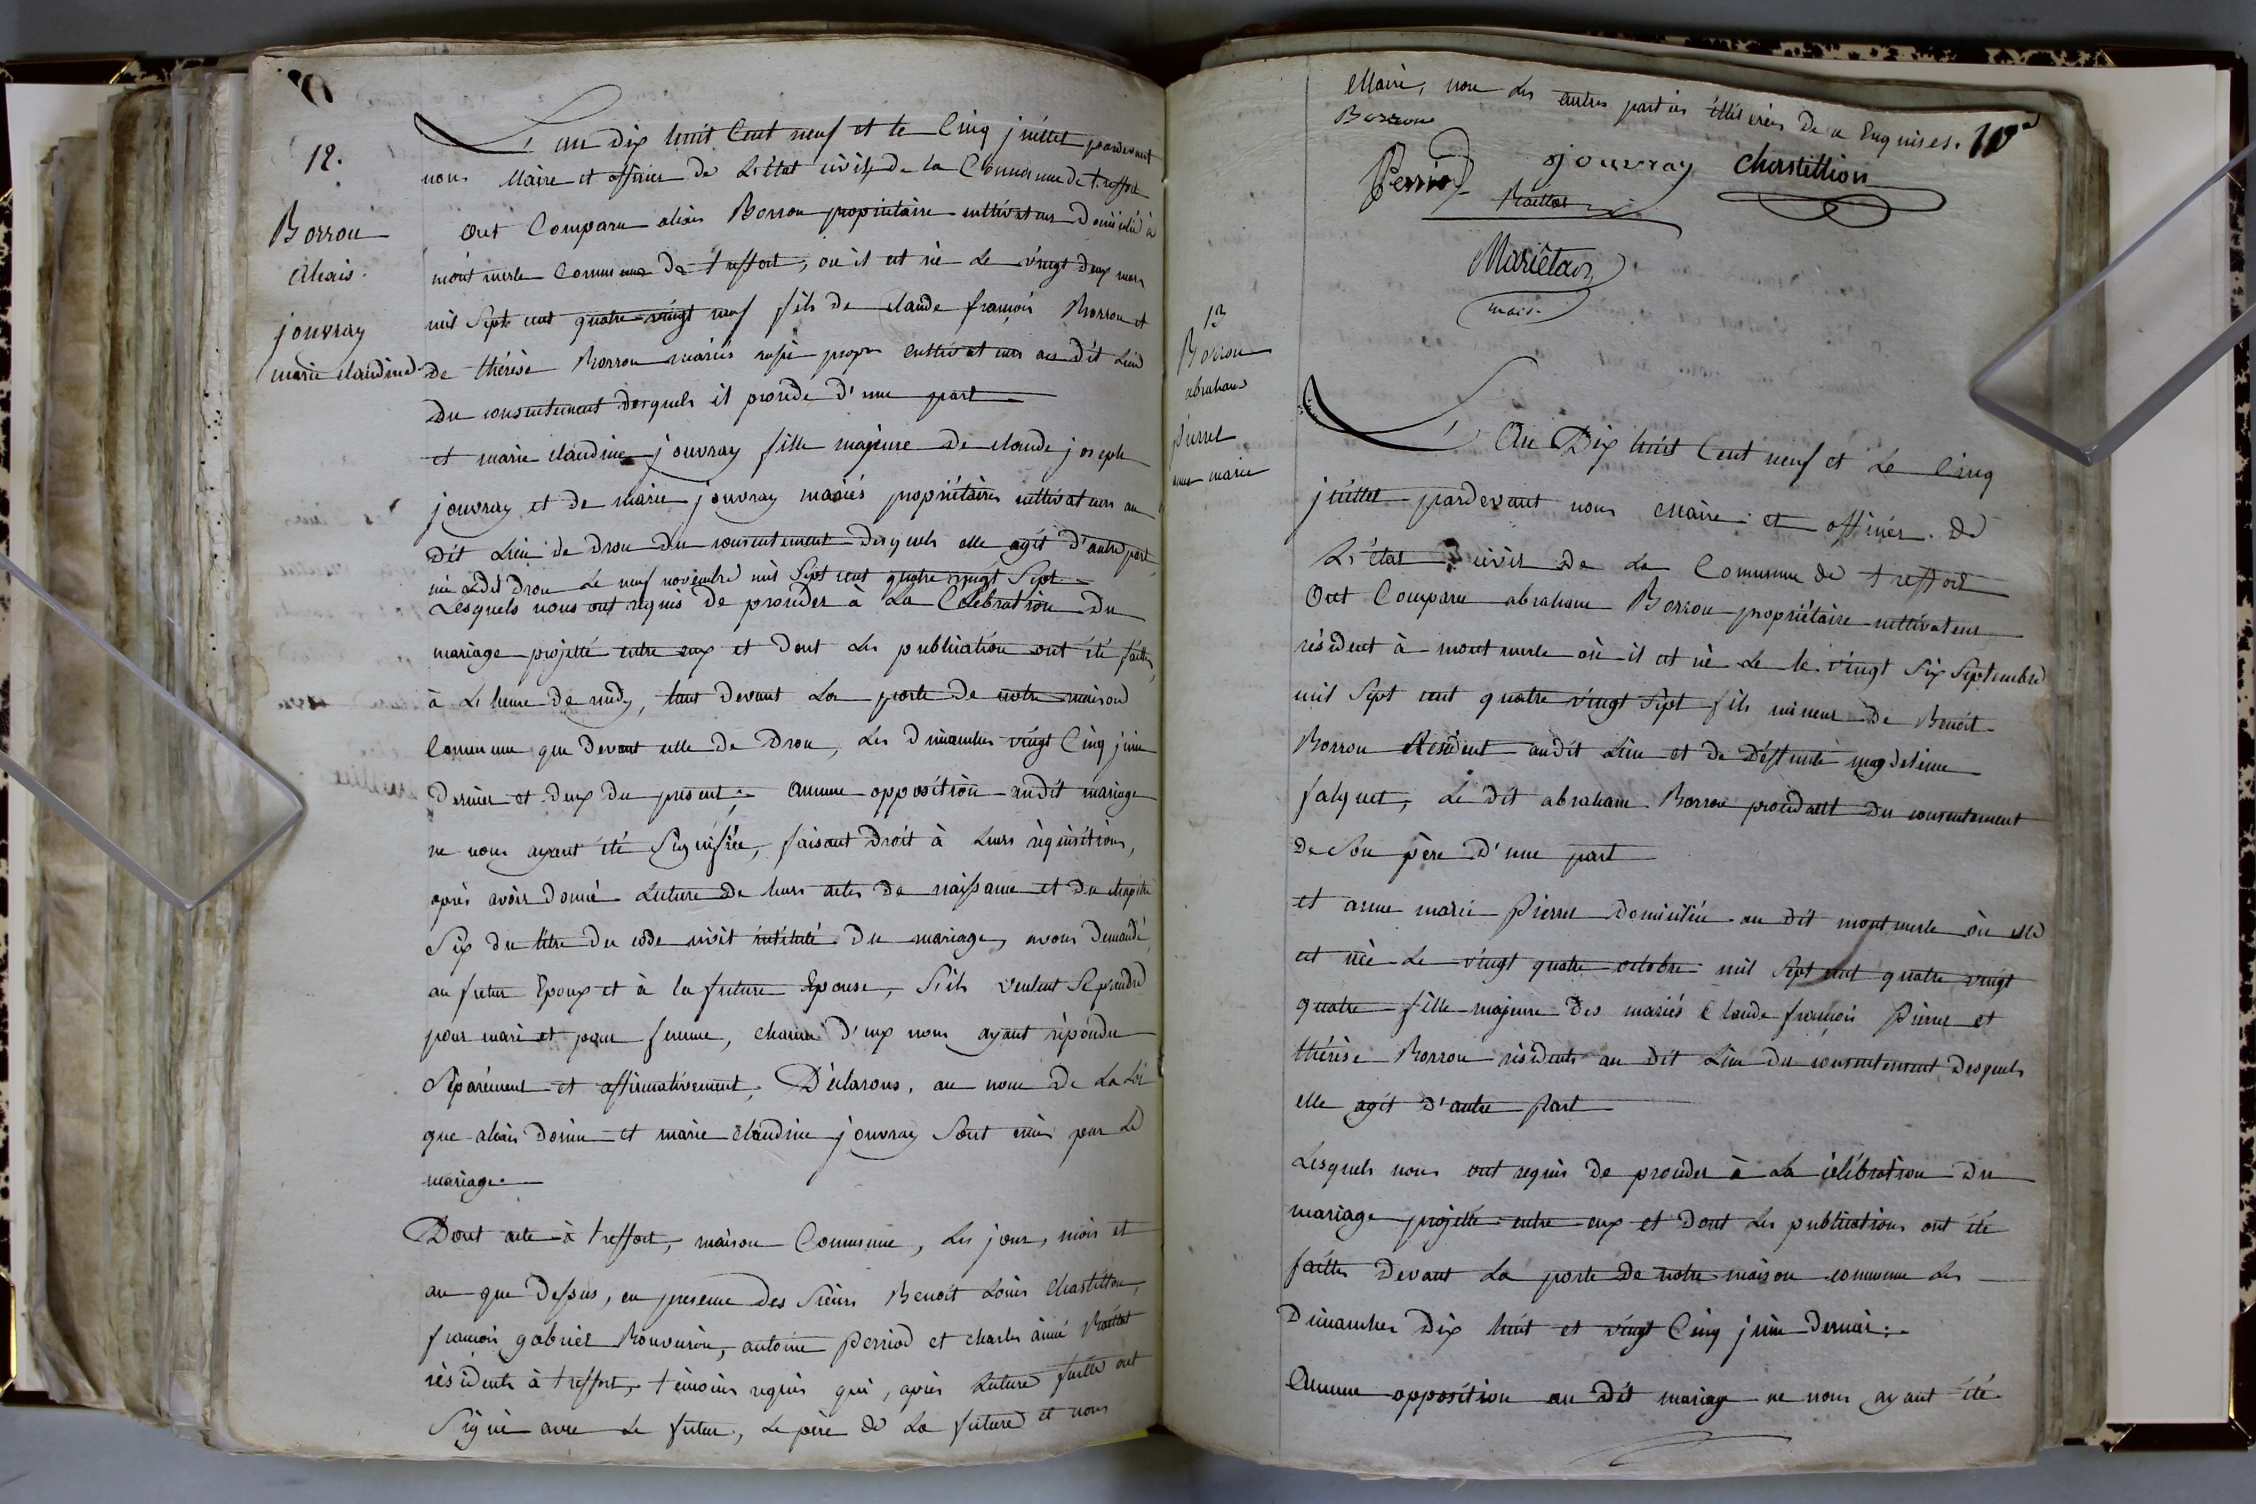 12.
Borron
Alxis.
jouvray
marie claudine
L'an dix huit Cent neuf et le Cinq juillet pardevant
nous Maire et officier de L'état civil de la Commune de treffort
Out Comparu alxis Borron propriétaire cultivateur Domicilié à
mont merle Commune de treffort, où il est né Le vingt deux mars
mil Sept cent quatre-vingt neuf fils de Claude françois Borron et
de thérèse Borron mariés propr cultivateurs au dit Lieu
Du consentement desquels il procède d'une part
et marie claudine jouvray fille majeure De claude joseph
jouvray et de marie jouvray mariés propriétaires cultivateurs au
Dit Lieu de Drom Du consentement desquels elle agit d'autre part,
née audit Drom Le neuf novembre mil Sept cent quatre vingt Sept
Lesquels nous ont requis de procéder à La Célébration Du
mariage projetté entre eux et Dont Les publication ont été faites,
à L'heure de midy, tant Devant La porte De notre maison
Commune que Devant celle De Drom, Les Dimanches vingt Cinq juin
Dernier et deux Du présent; Aucune opposition audit mariage
ne nous ayant été Signifiée, faisant Droit à Leurs réquisitions,
après avoir Donné Lecture De leurs actes De naissance et Du chapitre
Six Du titre Du code civil intitulé Du mariage, avons Demandé
au futur Epoux et à la future Epouse, S'ils veulent Se prendre
pour mari et pour femme, chacun D'eux nous ayant répondu
Séparément et affirmativement, Déclarons, au nom De La Loi
que alxis et marie claudine jouvray Sont unis par Le
mariage.
Dont acte à treffort, maison Commune, Les jour, mois et
an que Dessus, en présence Des Sieurs Benoit Louis Chastillon,
françois gabriel antoine perriod et charles aimé
résidents à treffort, témoins requis qui, après Lecture faite ont
Signé avec Le futur, Le père De La future et nous
Maire, non Les autres parties illitérées De ce Enquises.
Borron
Perriod jouvray Chastillion
Mariétan
maire
13
Borron
abraham
pierret
anne marie
L'An Dix huit Cent neuf et Le Cinq
juillet pardevant nous Maire et officier De
L'état civil De La Commune De treffort
Out Comparu abraham Borron propriétaire cultivateur
résident à mont merle où il est né Le le vingt Six Septembre
mil Sept cent quatre vingt Sept fils mineur De Benoit
Borron Résident audit Lieu et De Défunte magdeleine
falquet, Le Dit abraham Borron procédant Du consentement
De Son père D'une part
et anne marie pierret Domiciliée au dit mont merle où elle
est née Le vingt quatre octobre mil Sept cent quatre vingt
quatre fille majeure Des mariés Claude françois pierret et
thérèse Borron résidents au Dit Lieu Du consentement Desquels
elle agit D'autre part
Lesquels nous ont requis De procéder à La célébration Du
mariage projetté entre eux et Dont Les publications ont été
faites Devant La porte De notre maison commune Les
Dimanches Dix huit et vingt Cinq juin Dernier;
Aucune opposition au Dit mariage ne nous ayant été